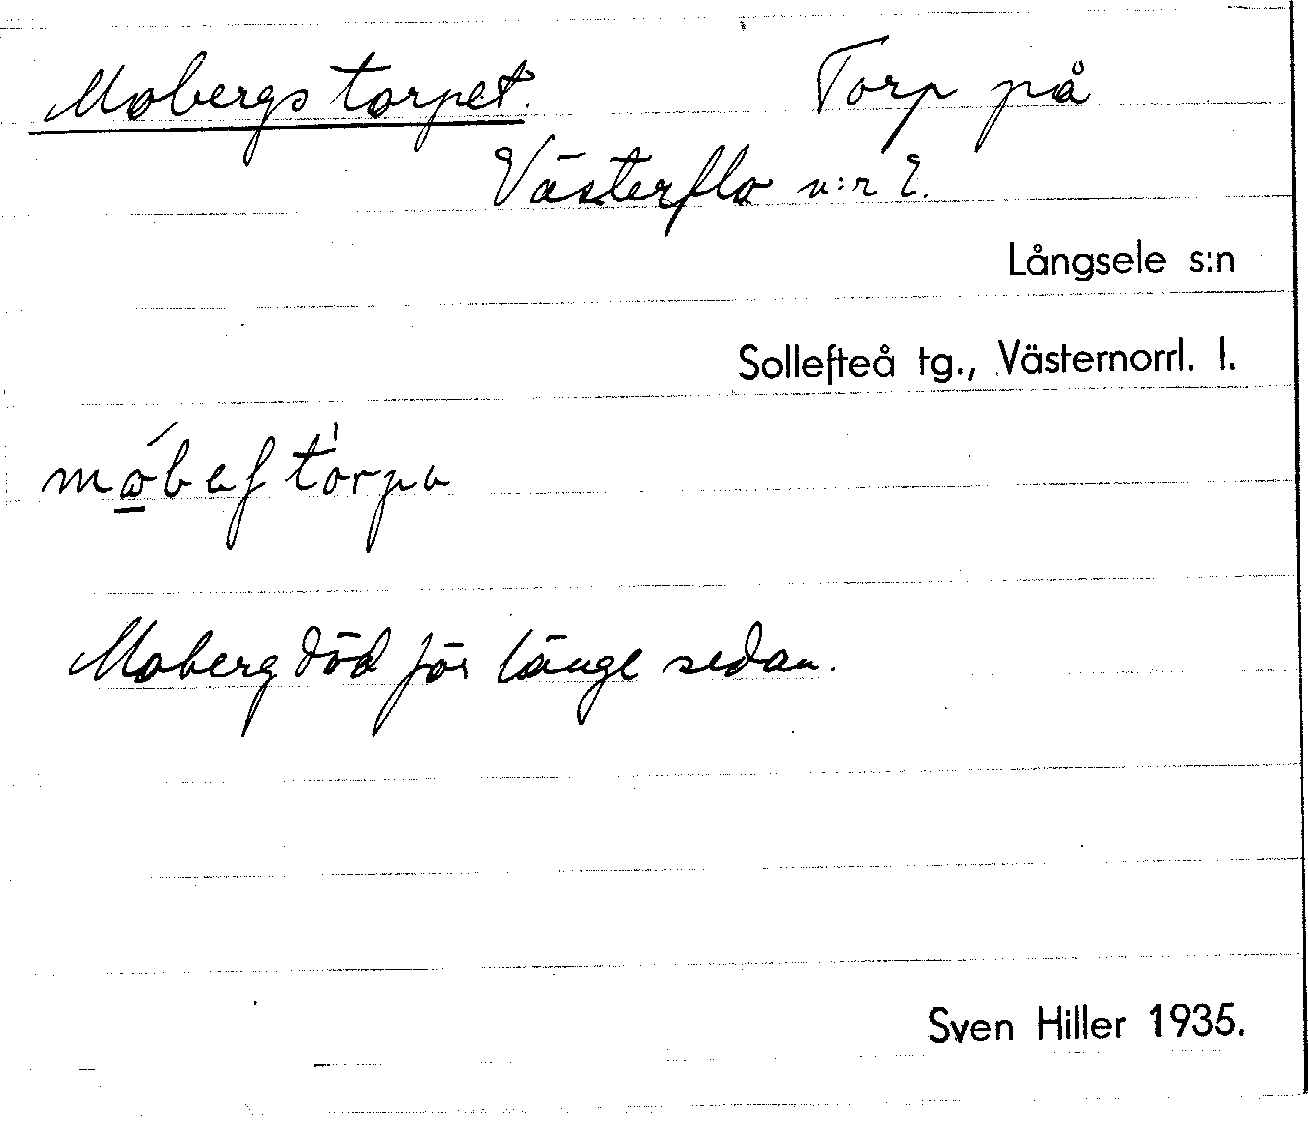 Mobergstorpet. Torp på
Västerflo n:r 2.
Långsele s:n
Sollefteå tg., Västernorrl. l.
Moberg död för länge sedan.
Sven Hiller 1935.